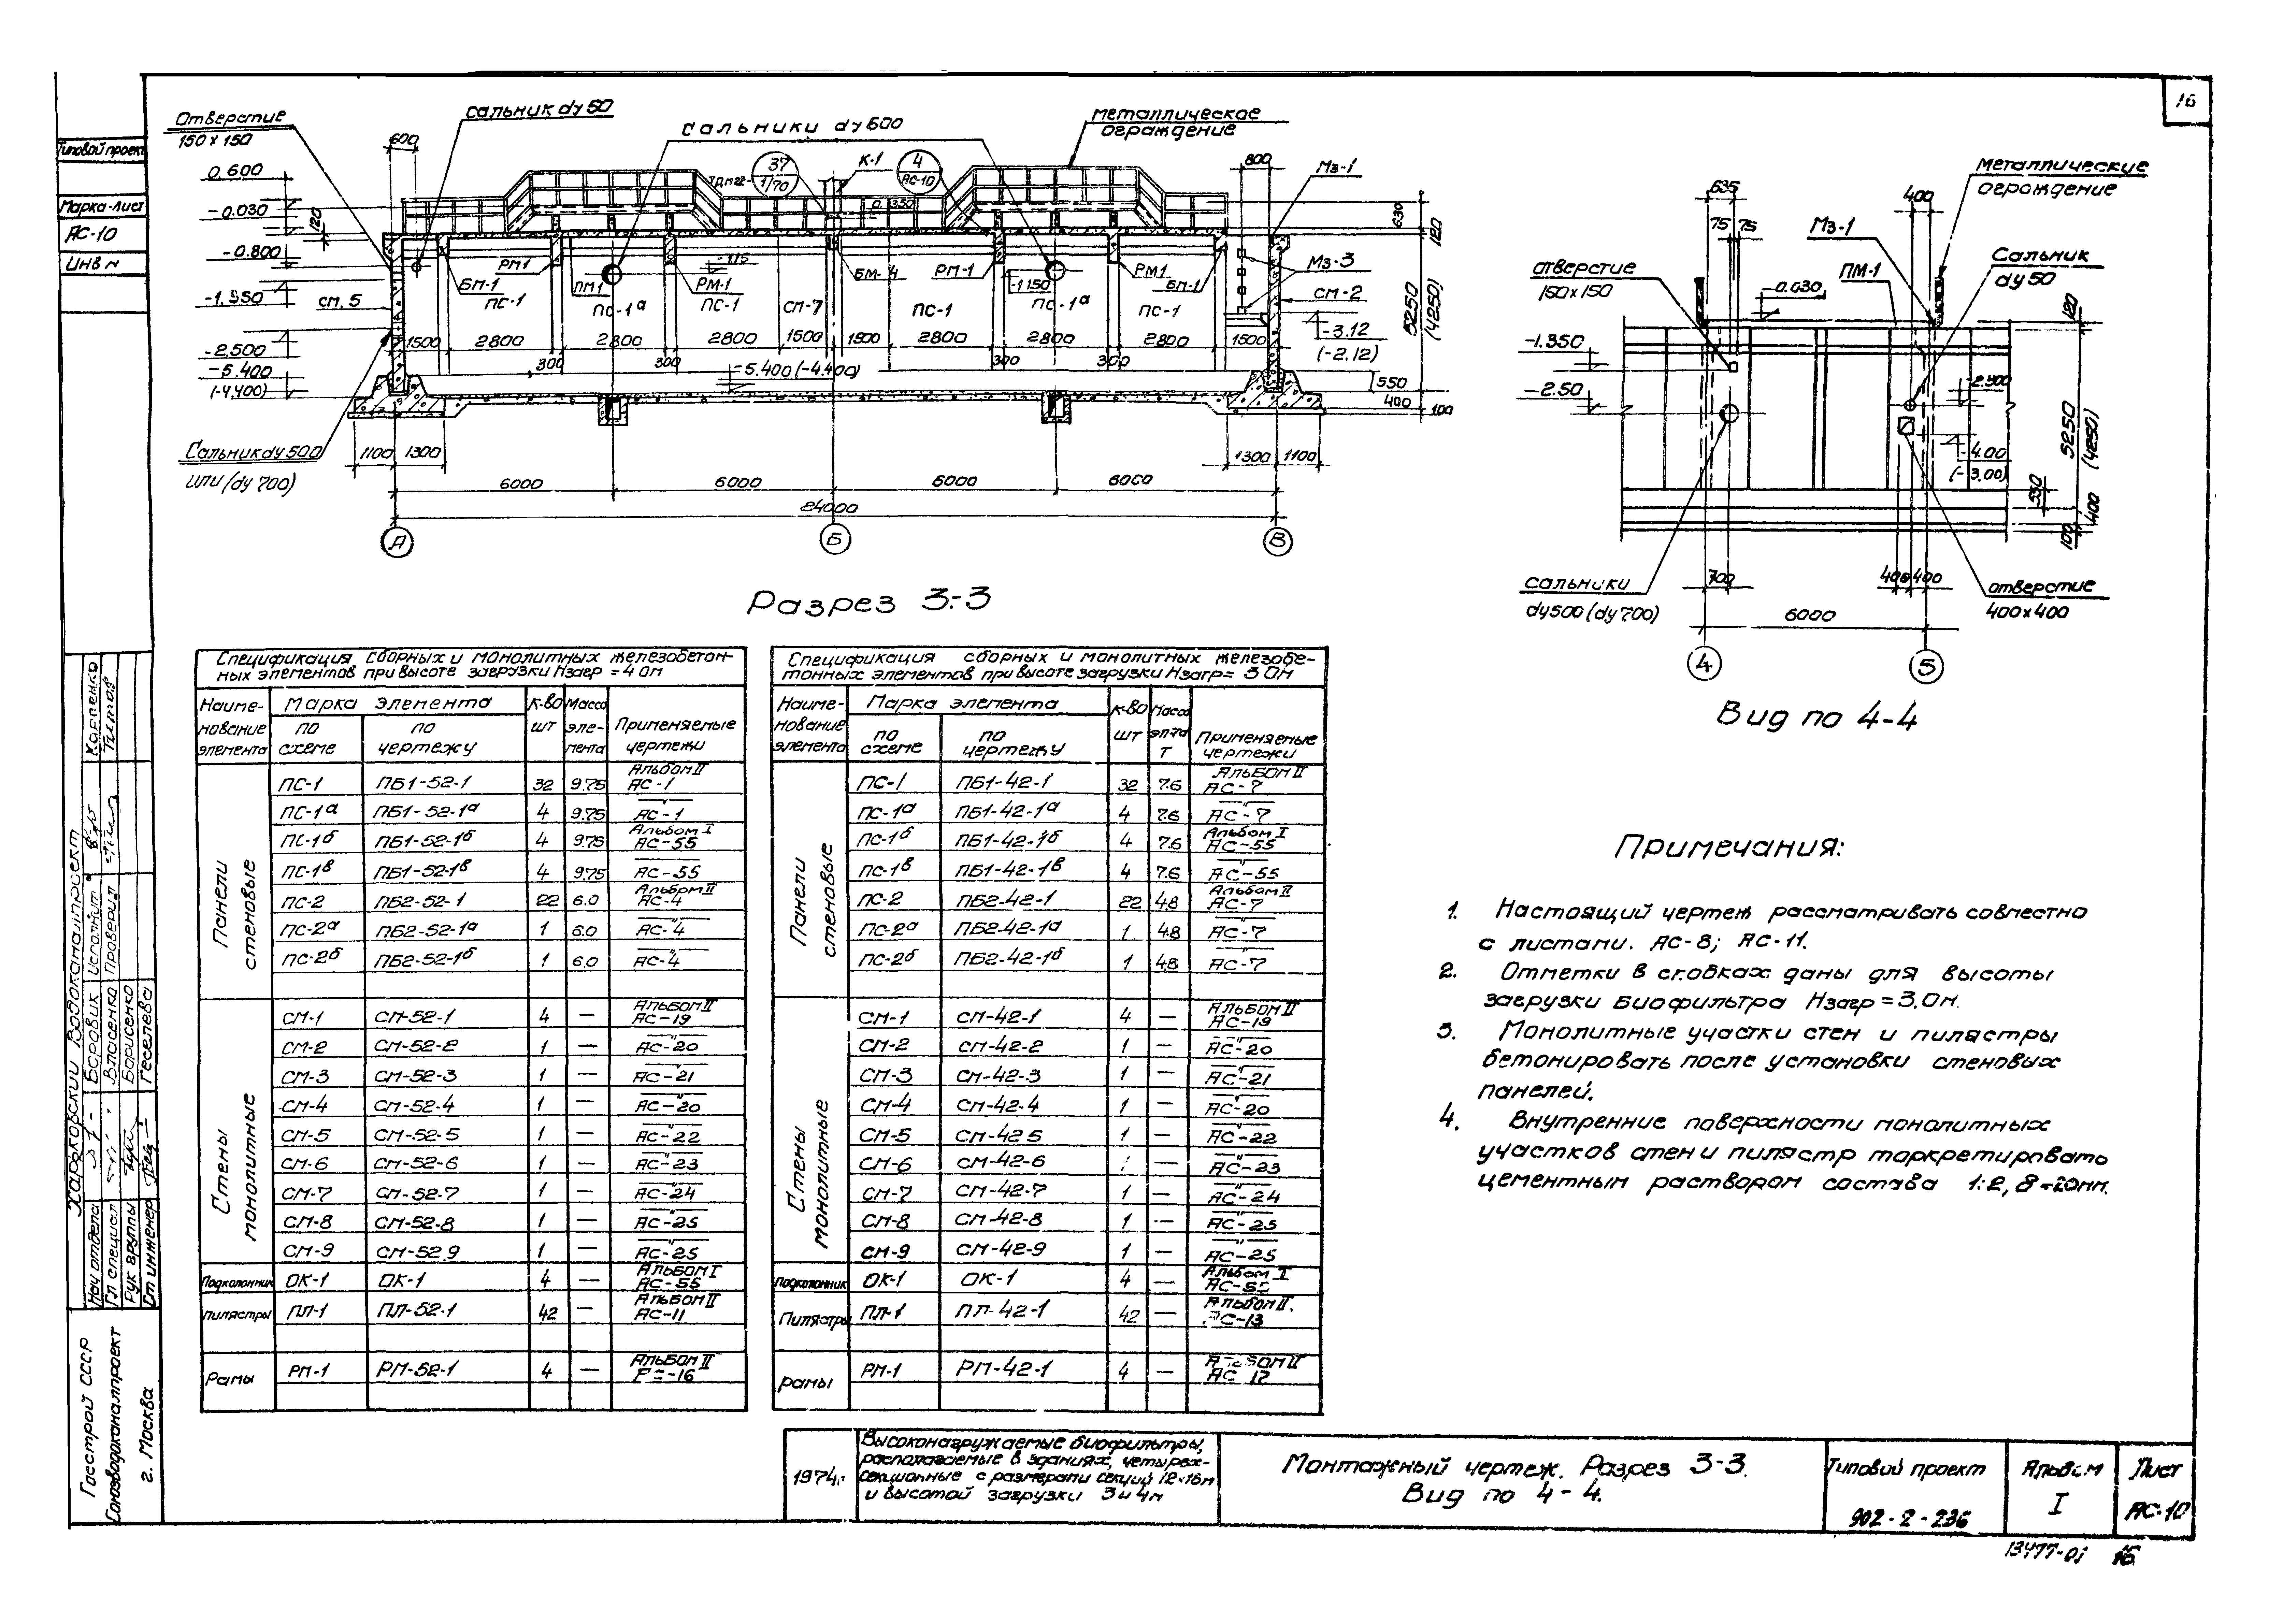 16
Типовой проект
Марка-лист
АС-10
Инв №
Отверстие
150×150
сальник dу 50
Сальники dу 600
металлическое
ограждение
600
0.600
-0.030
120
-0.800
-1.350
см. 5
-2.500
-5.400
(-4.400)
Сальник dу 500
или (dу 700)
37
1/70
К-1
4
АС-10
0.350
800
Мз-1
Мз-3
СМ-2
-3.12
(-2.12)
630
120
5250
(4250)
550
400
100
БМ-1
РМ1
ПМ1
РМ-1
БМ-4
РМ-1
-1150
РМ1
БМ-1
ПС-1
ПС-1а
ПС-1
СМ-7
ПС-1
ПС-1а
ПС-1
1500
2800
2800
2800
1500
1500
2800
2800
2800
1500
300
300
300
300
-5.400 (-4.400)
1100
1300
1300
1100
6000
6000
6000
6000
24000
А
Б
В
Разрез 3-3
металлические
ограждение
635
400
75
75
Мз-1
отверстие
150×150
ПМ-1
Сальник
dу 50
-0.030
120
-1.350
-2.50
-2.500
-4.00
(-3.00)
5250
(4250)
550
400
100
сальники
dу500 (dу 700)
700
400
400
отверстие
400×400
6000
4
5
Вид по 4-4
Спецификация сборных и монолитных железобетон-
ных элементов при высоте загрузки Нзагр = 4 0м
Наиме-
нование
элемента
Марка элемента
по
схеме
по
чертежу
к-во
шт
Масса
эле-
мента
Применяемые
чертежи
Панели
стеновые
ПС-1 ПБ1-52-1 32 9.75 Альбом II АС-1
ПС-1а ПБ1-52-1а 4 9.75 —"— АС-1
ПС-1б ПБ1-52-1б 4 9.75 Альбом I АС-55
ПС-1в ПБ1-52-1в 4 9.75 —"— АС-55
ПС-2 ПБ2-52-1 22 6.0 Альбом II АС-4
ПС-2а ПБ2-52-1а 1 6.0 —"— АС-4
ПС-2б ПБ2-52-1б 1 6.0 —"— АС-4
Стены
монолитные
СМ-1 СМ-52-1 4 — Альбом II АС-19
СМ-2 СМ-52-2 1 — —"— АС-20
СМ-3 СМ-52-3 1 — —"— АС-21
СМ-4 СМ-52-4 1 — —"— АС-20
СМ-5 СМ-52-5 1 — —"— АС-22
СМ-6 СМ-52-6 1 — —"— АС-23
СМ-7 СМ-52-7 1 — —"— АС-24
СМ-8 СМ-52-8 1 — —"— АС-25
СМ-9 СМ-52.9 1 — —"— АС-25
Подколонник ОК-1 ОК-1 4 — Альбом I АС-55
Пилястры ПЛ-1 ПЛ-52-1 42 — Альбом II АС-11
Рамы РМ-1 РМ-52-1 4 — Альбом II -16
Спецификация сборных и монолитных железобе-
тонных элементов при высоте загрузки Нзагр= 3 0м
Наиме-
нование
элемента
Марка элемента
по
схеме
по
чертежу
к-во
шт
Масса
эл-та
т
Применяемые
чертежи
Панели
стеновые
ПС-1 ПБ1-42-1 32 7.6 Альбом II АС-7
ПС-1а ПБ1-42-1а 4 7.6 —"— АС-7
ПС-1б ПБ1-42-1б 4 7.6 Альбом I АС-55
ПС-1в ПБ1-42-1в 4 7.6 —"— АС-55
ПС-2 ПБ2-42-1 22 4.8 Альбом II АС-7
ПС-2а ПБ2-42-1а 1 4.8 —"— АС-7
ПС-2б ПБ2-42-1б 1 4.8 —"— АС-7
Стены
монолитные
СМ-1 СМ-42-1 4 — Альбом II АС-19
СМ-2 СМ-42-2 1 — —"— АС-20
СМ-3 СМ-42-3 1 — —"— АС-21
СМ-4 СМ-42-4 1 — —"— АС-20
СМ-5 СМ-42 5 1 — —"— АС-22
СМ-6 СМ-42-6 — —"— АС-23
СМ-7 СМ-42-7 1 — —"— АС-24
СМ-8 СМ-42-8 1 — —"— АС-25
СМ-9 СМ-42-9 1 — —"— АС-25
Подколонник ОК-1 ОК-1 4 — Альбом I АС-55
Пилястры ПЛ-1 ПЛ-42-1 42 — Альбом II. АС-13
рамы РМ-1 РМ-42-1 4 — Альбом II АС 17
Примечания:
1. Настоящий чертеж рассматривать совместно
с листами. АС-8; АС-11.
2. Отметки в скобках даны для высоты
загрузки биофильтра Нзагр=3.0м.
3. Монолитные участки стен и пилястры
бетонировать после установки стеновых
панелей.
4. Внутренние поверхности монолитных
участков стен и пилястр торкретировать
цементным раствором состава 1:2, δ=20мм.
Харьковский Водоканалпроект
Нач отдела
Гл. специал
Рук группы
Ст инженер
Боровик
Власенко
Борисенко
Геселева
Исполнит
Проверил
Карпенко
Титов
Госстрой СССР
Союзводоканалпроект
г. Москва
1974г.
Высоконагружаемые биофильтры,
располагаемые в зданиях, четырех-
секционные с размерами секций 12×18м
и высотой загрузки 3и4м
Монтажный чертеж. Разрез 3-3.
Вид по 4-4.
Типовой проект
902-2-236
Альбом
I
Лист
АС-10
13477-01 16